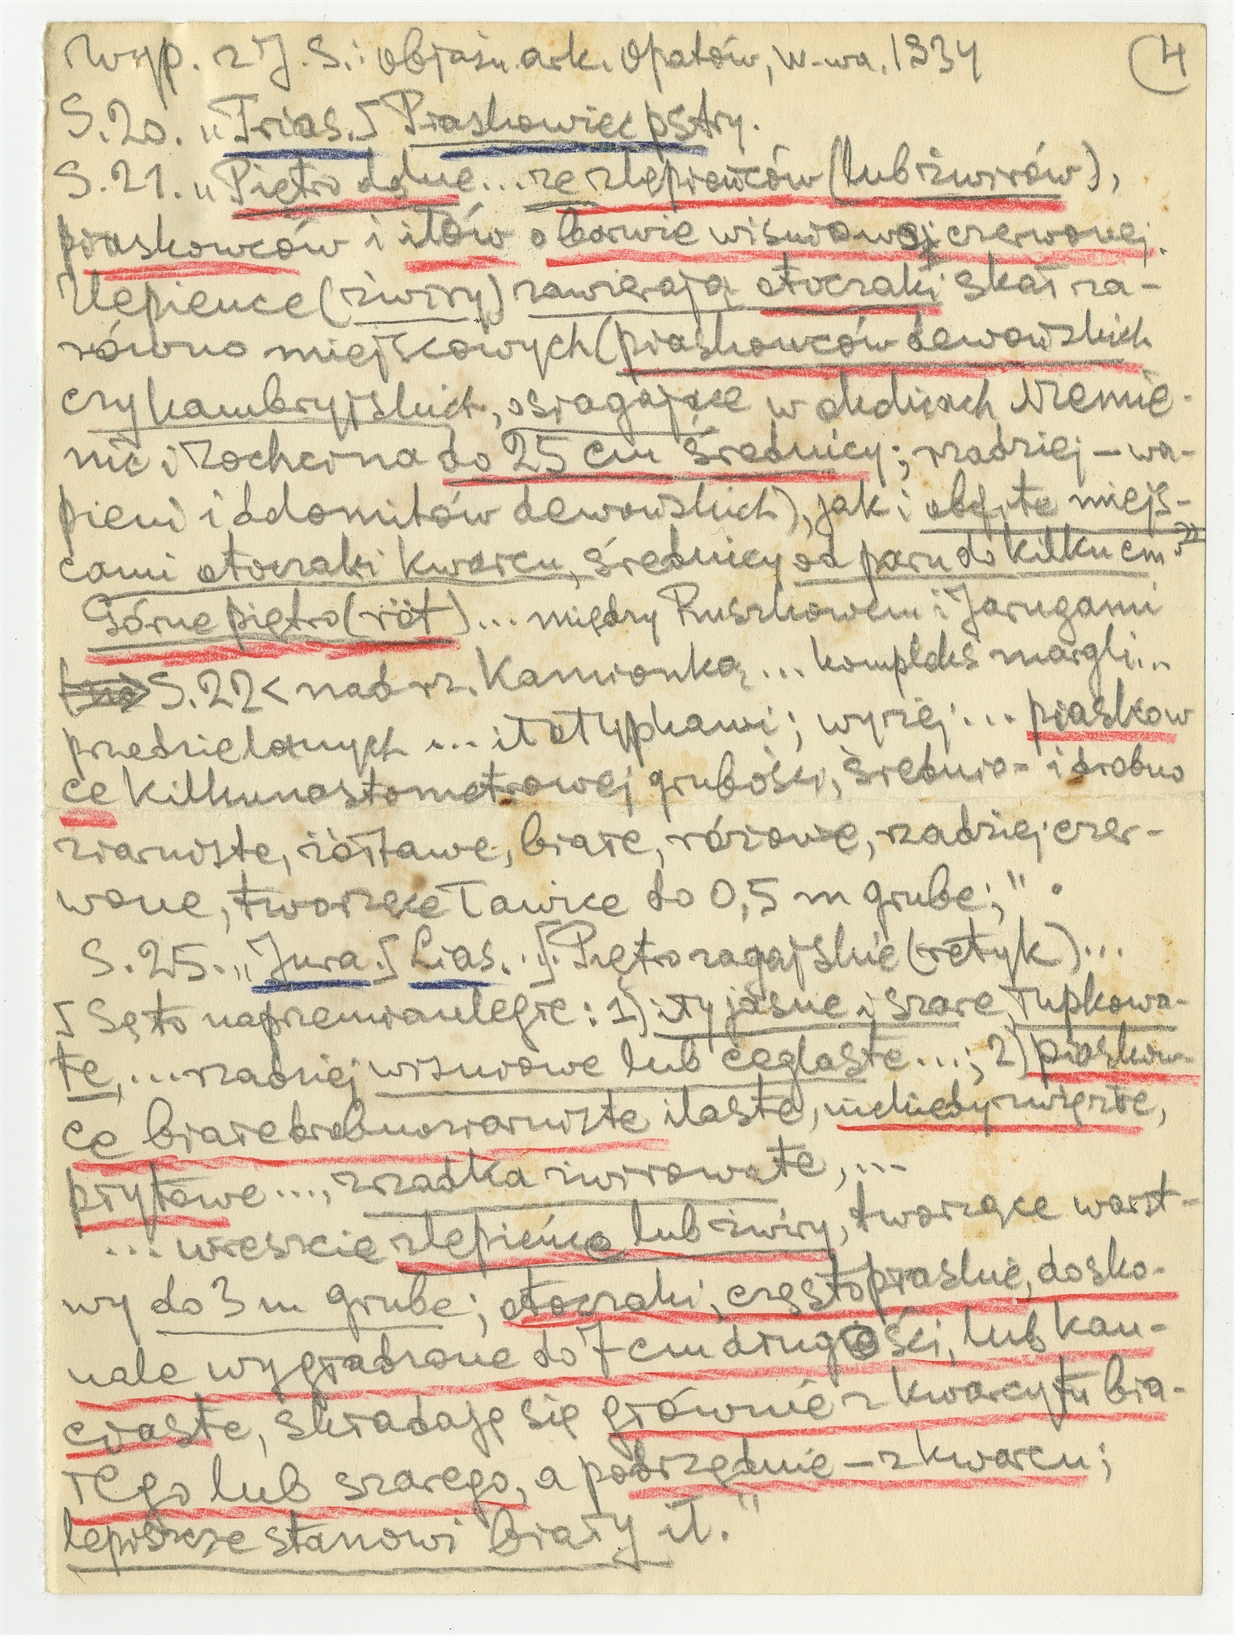 Wyp. z J. S.: objaśn. ark. Opatów, W-wa, 1934 (4
S. 20. „Trias.[ Piaskowiec pstry.
S. 21. „Piętro dolne... ze zlepieńców (lub żwirów),
piaskowców i iłów o barwie wiśniowej czerwonej.
Zlepieńce (żwiry) zawierają otoczaki skał za-
równo miejscowych (piaskowców dewońskich
czy kambryjskich, osiągające w okolicach Niemie-
nic i Zochcina do 25 cm średnicy; rzadziej – wa-
pieni i dolomitów dewońskich), jak i obfite miejs-
cami otoczaki kwarcu, średnicy od paru do kilku cm"
Górne piętro (röt)... między Ruszkowem i Jarugami
S. 22 < nad rz. Kamionką... kompleks margli...
przedzielonych ... iłołupkami; wyżej... piaskow
ce kilkunastometrowej grubości, średnio- i drobno
ziarniste, żółtawe, białe, różowe, rzadziej czer-
wone, tworzące ławice do 0,5 m grube;".
S. 25. „Jura.[ Lias. ..[. Piętro zagajskie (retyk)...
[ Są to naprzemianległe: 1) iły jasne i szare, łupkowa-
te, ... rzadziej wiśniowe lub ceglaste...; 2) piaskow-
ce białe drobnoziarniste ilaste, niekiedy zwięzłe,
płytowe ..., zrzadka żwirowate, ...
... wreszcie zlepieńce lub żwiry, tworzące warst-
wy do 3 m grube; otoczaki, często płaskie, dosko-
nale wygładzone do 7 cm długości, lub kan-
ciaste, składają się głównie z kwarcytu bia-
łego lub szarego, a podrzędnie – z kwarcu;
lepiszcze stanowi biały ił."